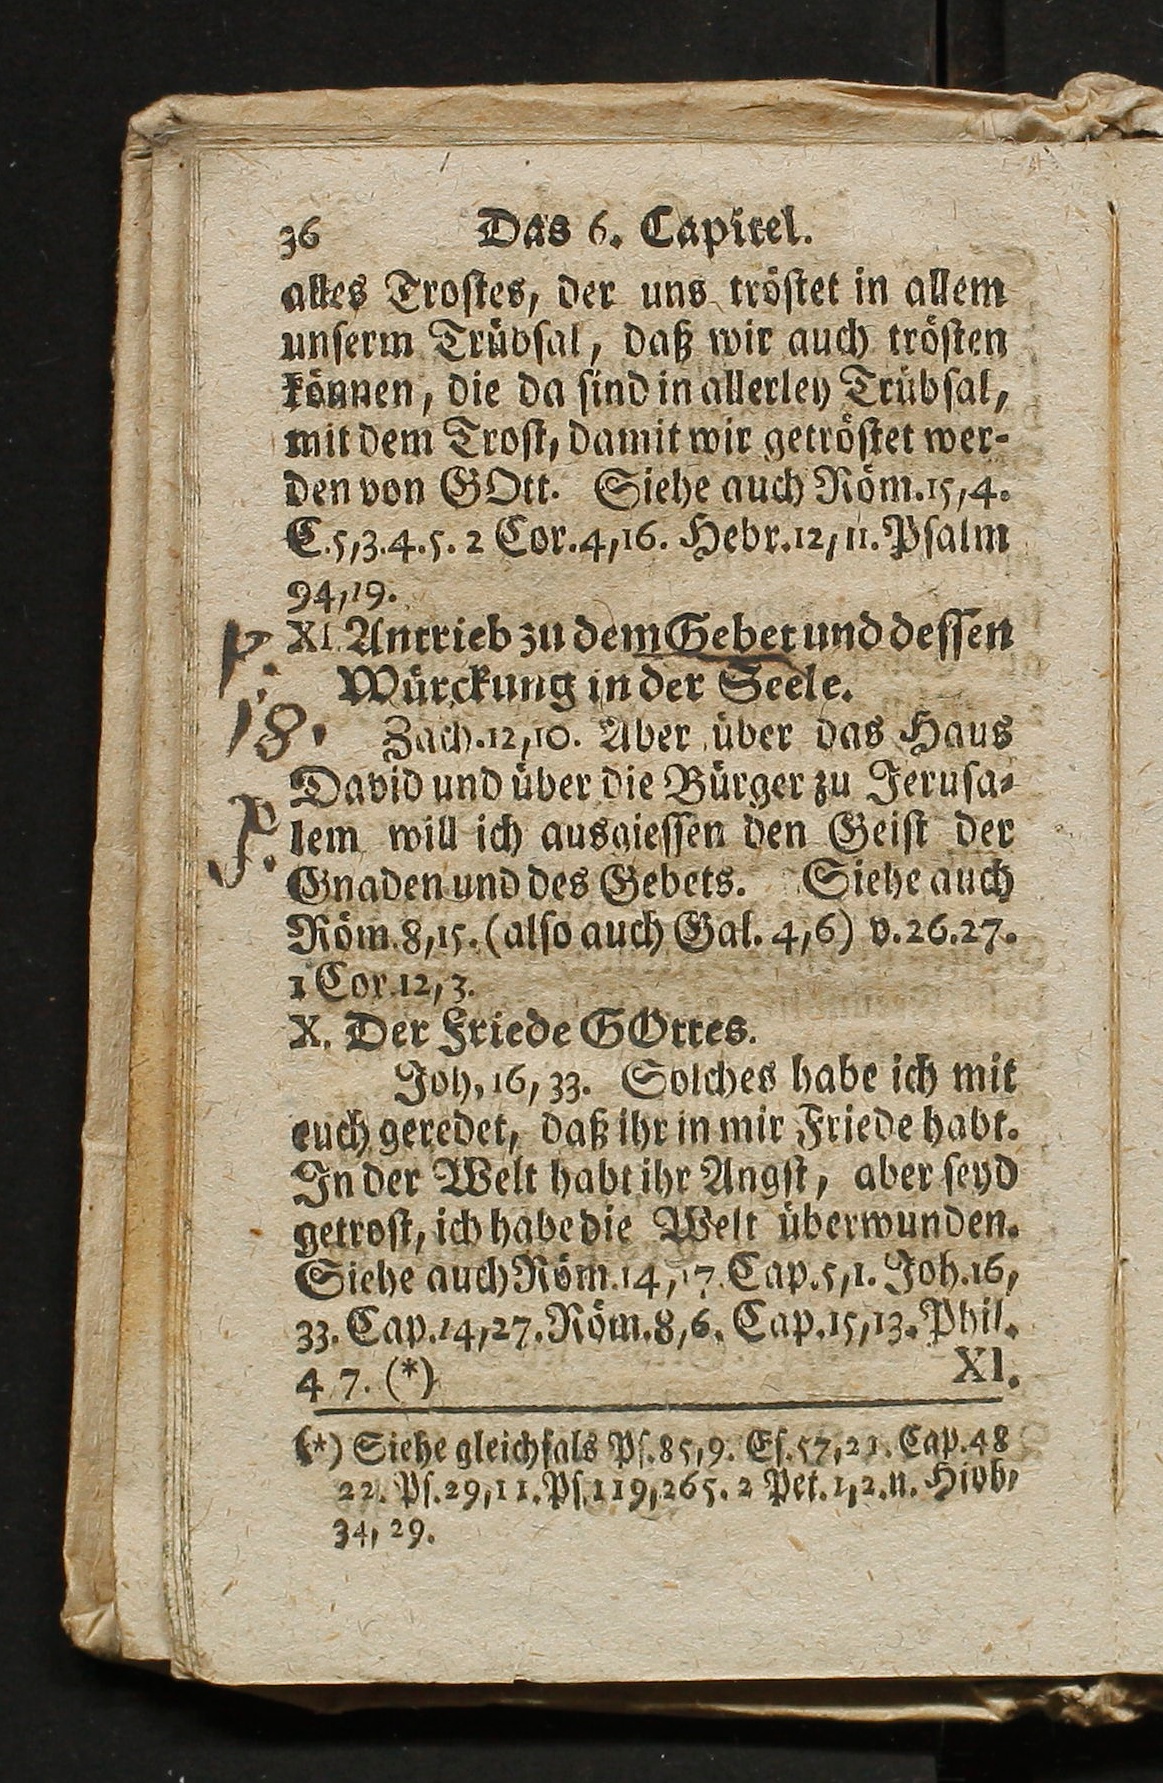 36 Das 6. Capitel.
alles Trostes, der uns tröstet in allem
unserm Trübsal, daß wir auch trösten
können, die da sind in allerley Trübsal,
mit dem Trost, damit wir getröstet wer-
den von GOtt. Siehe auch Röm. 15, 4.
C. 5, 3. 4. 5. 2 Cor. 4, 16. Hebr. 12, 11. Psalm
94, 19.
XI. Antrieb zu dem Gebet und dessen
Würckung in der Seele.
18.
Zach. 12, 10. Aber über das Haus
David und über die Bürger zu Jerusa-
lem will ich ausgiessen den Geist der
Gnaden und des Gebets. Siehe auch
Röm. 8, 15. (also auch Gal. 4, 6) v. 26. 27.
1 Cor. 12, 3.
X. Der Friede GOttes.
Joh. 16, 33. Solches habe ich mit
euch geredet, daß ihr in mir Friede habt.
In der Welt habt ihr Angst, aber seyd
getrost, ich habe die Welt überwunden.
Siehe auch Röm. 14, 17. Cap. 5, 1. Joh. 16,
33. Cap. 14, 27. Röm. 8, 6. Cap. 15, 13. Phil.
4 7. (*) XI.
(*) Siehe gleichfals Ps. 85, 9. Es. 57, 21. Cap. 48
22. Ps. 29, 11. Ps. 119, 265. 2 Pet. 1, 2. u. Hiob,
34, 29.